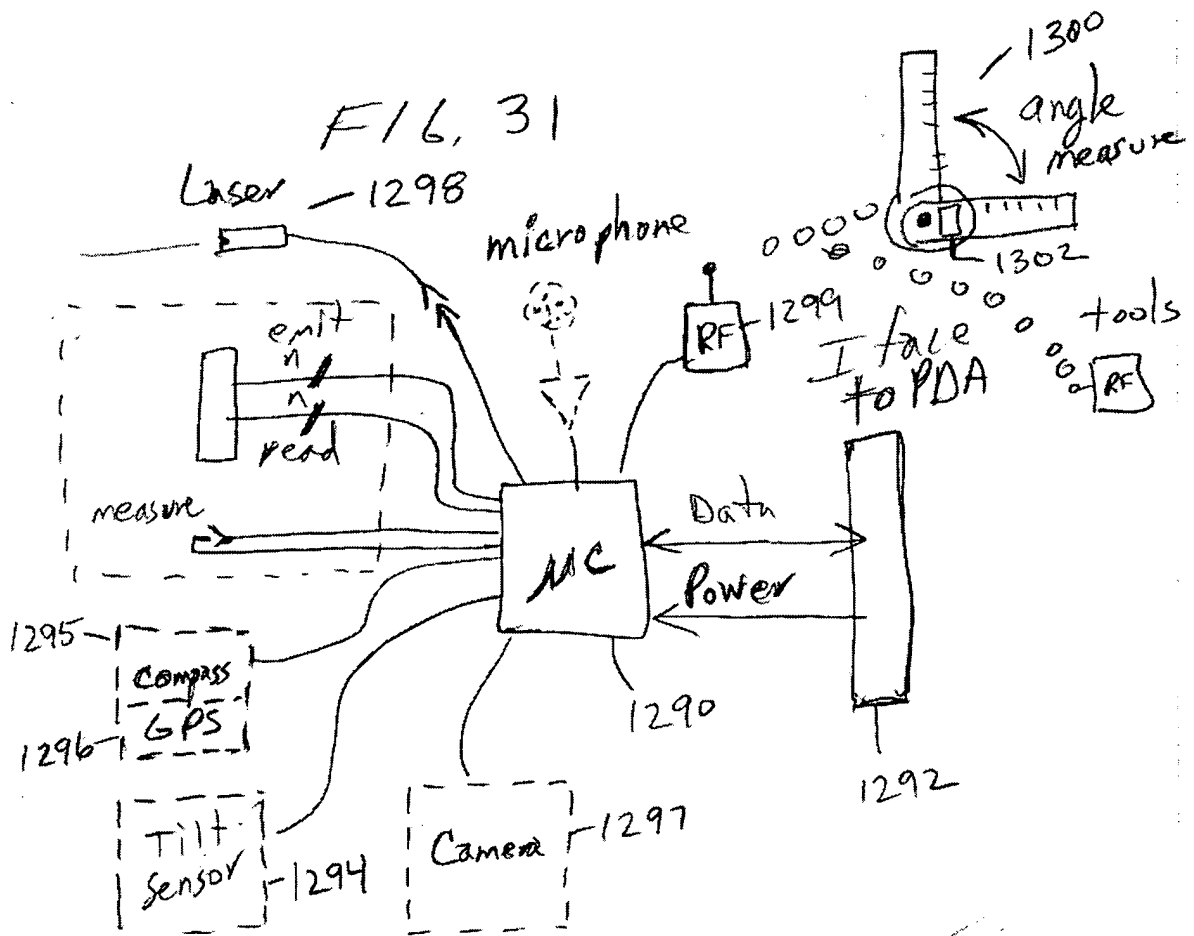 FIG. 31
1300
angle
measure
Laser
1298
microphone
1302
RF
1299
I face
to PDA
tools
RF
emit
n
n
read
measure
μC
Data
Power
1295
Compass
GPS
1296
1290
1292
Tilt
Sensor
1294
Camera
1297